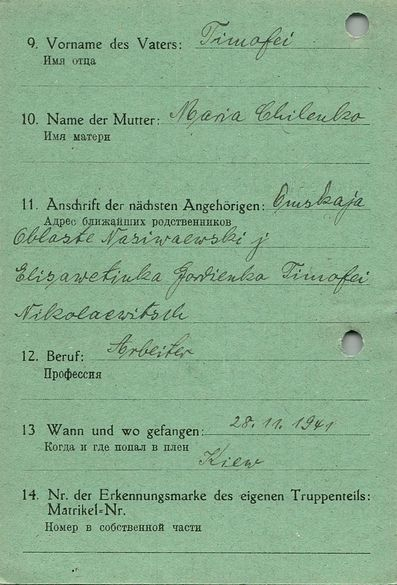 9. Vorname des Vaters: Timofei
Имя отца
10. Name der Mutter: Maria Chilenko
Имя матери
11. Anschrift der nächsten Angehörigen: Omskaja
Адрес ближайших родственников
Oblaste Nasiwaewski j
Elisawetinka Gordienko Timofei
Nikolaewitsch
12. Beruf: Arbeiter
Профессия
13 Wann und wo gefangen: 28. 11. 1941
Когда и где попал в плен
Kiew
14. Nr. der Erkennungsmarke des eigenen Truppenteils:
Matrikel=Nr.
Номер в собственной части